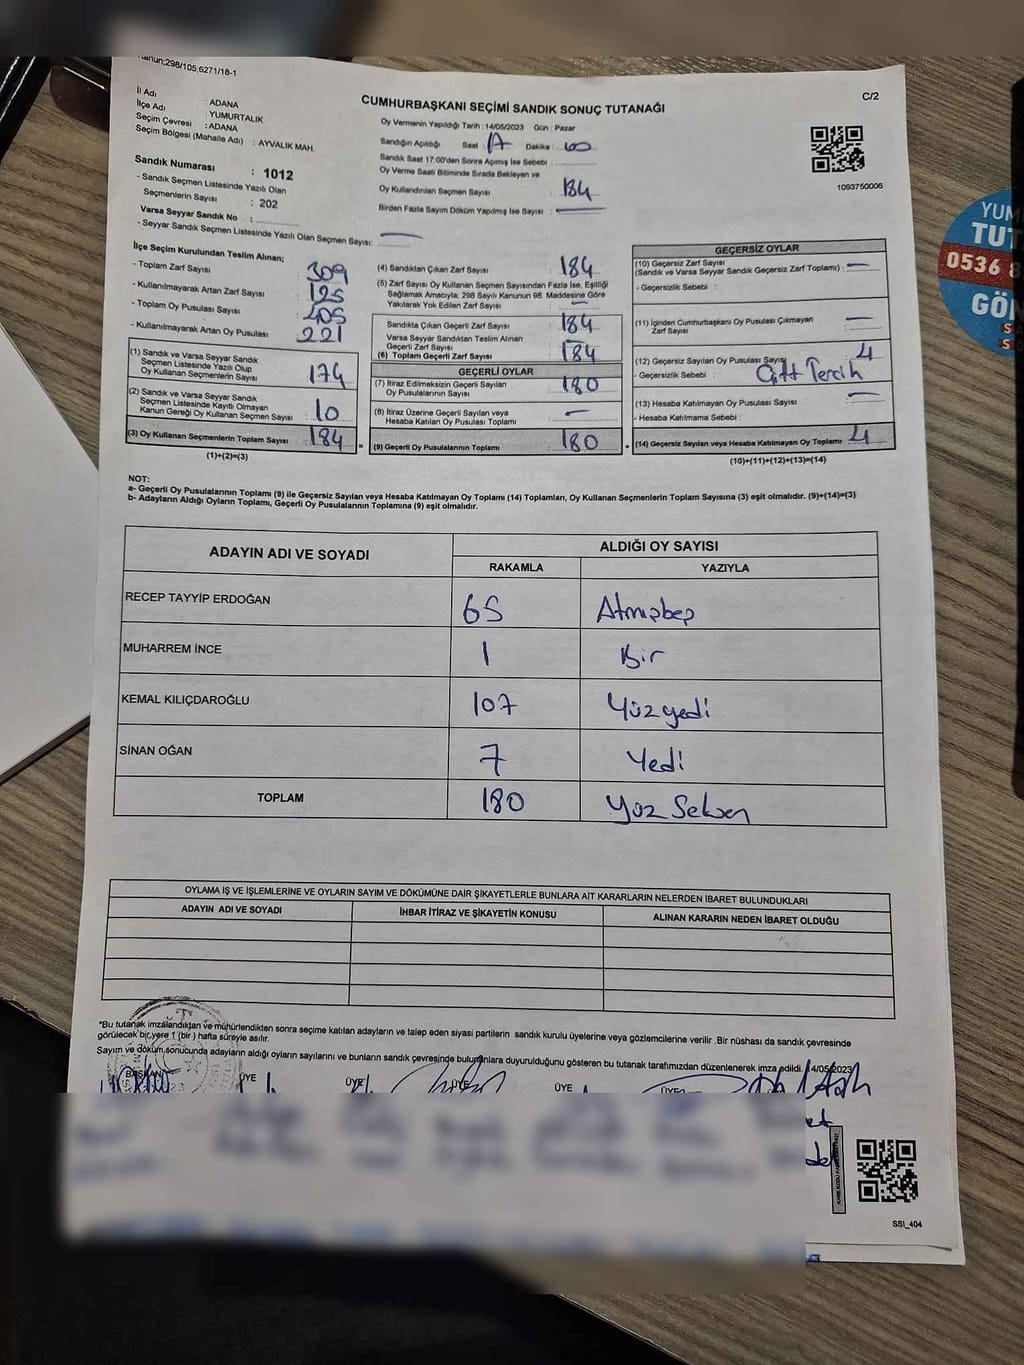 Kanun;298/105;6271/18-1
C/2
İl Adı : ADANA
İlçe Adı : YUMURTALIK
Seçim Çevresi : ADANA
Seçim Bölgesi (Mahalle Adı) : AYVALIK MAH.
Sandık Numarası : 1012
- Sandık Seçmen Listesinde Yazılı Olan
Seçmenlerin Sayısı : 202
Varsa Seyyar Sandık No :
- Seyyar Sandık Seçmen Listesinde Yazılı Olan Seçmen Sayısı: —
CUMHURBAŞKANI SEÇİMİ SANDIK SONUÇ TUTANAĞI
Oy Vermenin Yapıldığı Tarih : 14/05/2023 Gün : Pazar
Sandığın Açıldığı Saat : 17 Dakika : 00
Sandık Saat 17:00'den Sonra Açılmış İse Sebebi :
Oy Verme Saati Bitiminde Sırada Bekleyen ve
Oy Kullandırılan Seçmen Sayısı : 184
Birden Fazla Sayım Döküm Yapılmış İse Sayısı : —
1093750006
İlçe Seçim Kurulundan Teslim Alınan;
- Toplam Zarf Sayısı : 309
- Kullanılmayarak Artan Zarf Sayısı : 125
- Toplam Oy Pusulası Sayısı : 405
- Kullanılmayarak Artan Oy Pusulası : 221
(1) Sandık ve Varsa Seyyar Sandık
Seçmen Listesinde Yazılı Olup
Oy Kullanan Seçmenlerin Sayısı : 174
(2) Sandık ve Varsa Seyyar Sandık
Seçmen Listesinde Kayıtlı Olmayan
Kanun Gereği Oy Kullanan Seçmen Sayısı : 10
(3) Oy Kullanan Seçmenlerin Toplam Sayısı : 184
(1)+(2)=(3)
(4) Sandıktan Çıkan Zarf Sayısı : 184
(5) Zarf Sayısı Oy Kullanan Seçmen Sayısından Fazla İse, Eşitliği
Sağlamak Amacıyla; 298 Sayılı Kanunun 98. Maddesine Göre
Yakılarak Yok Edilen Zarf Sayısı : —
Sandıkta Çıkan Geçerli Zarf Sayısı : 184
Varsa Seyyar Sandıktan Teslim Alınan
Geçerli Zarf Sayısı :
(6) Toplam Geçerli Zarf Sayısı : 184
GEÇERLİ OYLAR
(7) İtiraz Edilmeksizin Geçerli Sayılan
Oy Pusulalarının Sayısı : 180
(8) İtiraz Üzerine Geçerli Sayılan veya
Hesaba Katılan Oy Pusulası Toplamı : —
(9) Geçerli Oy Pusulalarının Toplamı : 180
GEÇERSİZ OYLAR
(10) Geçersiz Zarf Sayısı
(Sandık ve Varsa Seyyar Sandık Geçersiz Zarf Toplamı) : —
- Geçersizlik Sebebi :
(11) İçinden Cumhurbaşkanı Oy Pusulası Çıkmayan
Zarf Sayısı : —
(12) Geçersiz Sayılan Oy Pusulası Sayısı : 4
- Geçersizlik Sebebi : Çift Tercih
(13) Hesaba Katılmayan Oy Pusulası Sayısı : —
- Hesaba Katılmama Sebebi :
(14) Geçersiz Sayılan veya Hesaba Katılmayan Oy Toplamı : 4
(10)+(11)+(12)+(13)=(14)
NOT:
a- Geçerli Oy Pusulalarının Toplamı (9) ile Geçersiz Sayılan veya Hesaba Katılmayan Oy Toplamı (14) Toplamları, Oy Kullanan Seçmenlerin Toplam Sayısına (3) eşit olmalıdır. (9)+(14)=(3)
b- Adayların Aldığı Oyların Toplamı, Geçerli Oy Pusulalarının Toplamına (9) eşit olmalıdır.
ADAYIN ADI VE SOYADI
ALDIĞI OY SAYISI
RAKAMLA YAZIYLA
RECEP TAYYİP ERDOĞAN 65 Atmışbeş
MUHARREM İNCE 1 Bir
KEMAL KILIÇDAROĞLU 107 Yüzyedi
SİNAN OĞAN 7 Yedi
TOPLAM 180 Yüz Seksen
OYLAMA İŞ VE İŞLEMLERİNE VE OYLARIN SAYIM VE DÖKÜMÜNE DAİR ŞİKAYETLERLE BUNLARA AİT KARARLARIN NELERDEN İBARET BULUNDUKLARI
ADAYIN ADI VE SOYADI İHBAR İTİRAZ VE ŞİKAYETİN KONUSU ALINAN KARARIN NEDEN İBARET OLDUĞU
*Bu tutanak imzalandıktan ve mühürlendikten sonra seçime katılan adayların ve talep eden siyasi partilerin sandık kurulu üyelerine veya gözlemcilerine verilir. Bir nüshası da sandık çevresinde
görülecek bir yere 1 (bir) hafta süreyle asılır.
Sayım ve döküm sonucunda adayların aldığı oyların sayılarını ve bunların sandık çevresinde bulunanlara duyurulduğunu gösteren bu tutanak tarafımızdan düzenlenerek imza edildi. 14/05/2023
BAŞKAN ÜYE ÜYE ÜYE ÜYE ÜYE
SSI_404
YUM
TUT
0536 8
GÖN